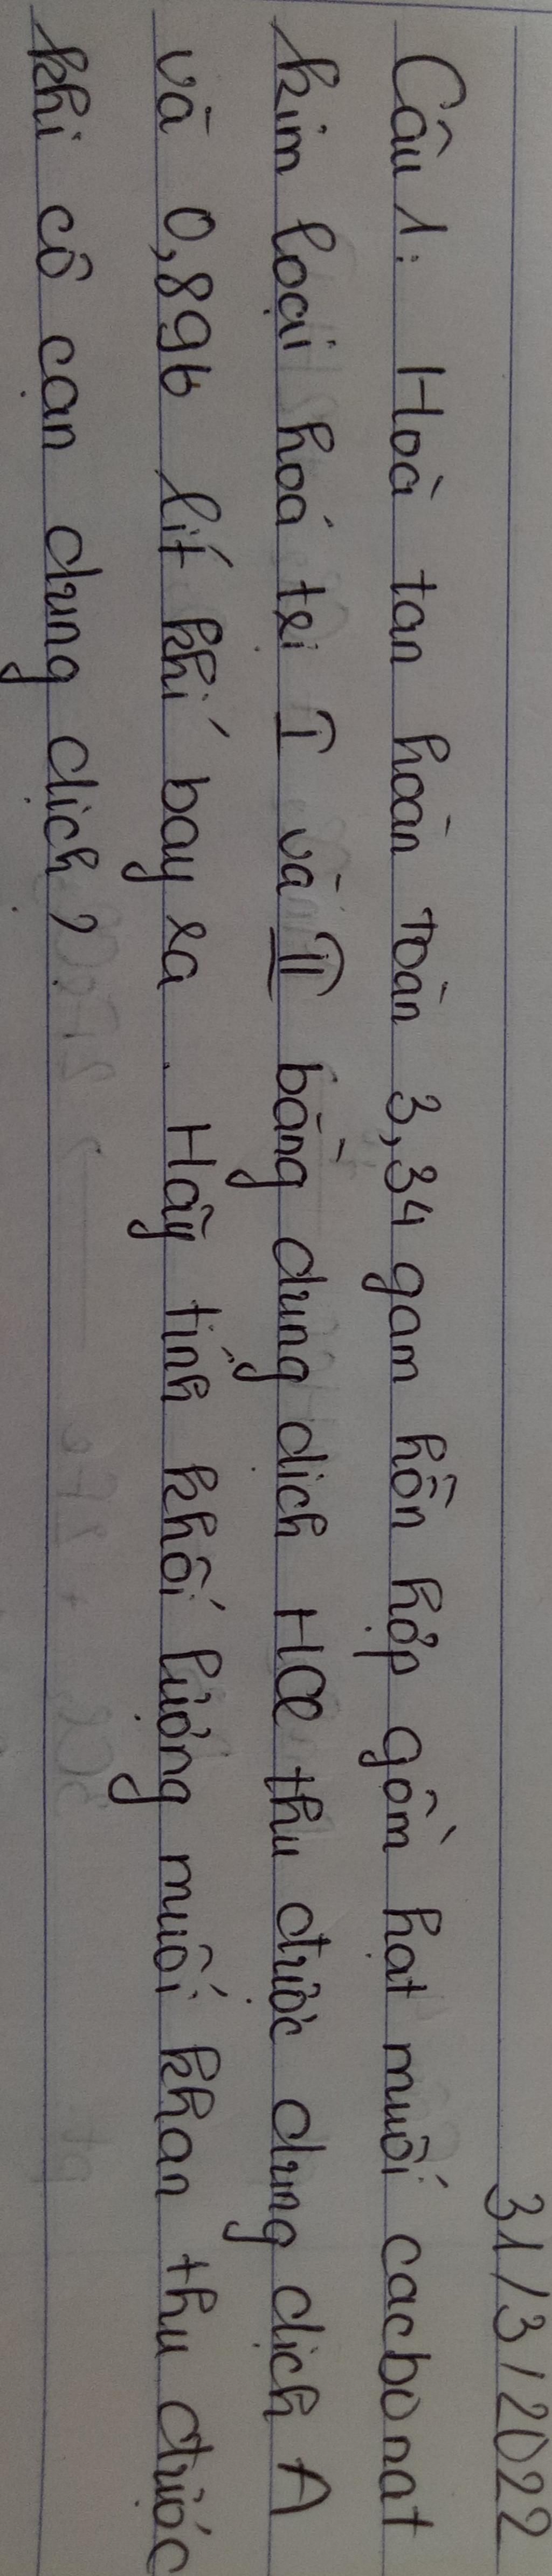 31/3/2022
Câu 1: Hoà tan hoàn toàn 3,34 gam hỗn hợp gồm hat muối cacbonat
kim loại hoá trị I và II bằng dung dịch HCl thu được dung dịch A
và 0,896 lít khí bay ra. Hãy tính khối lượng muối khan thu được
khi cô cạn dung dịch?